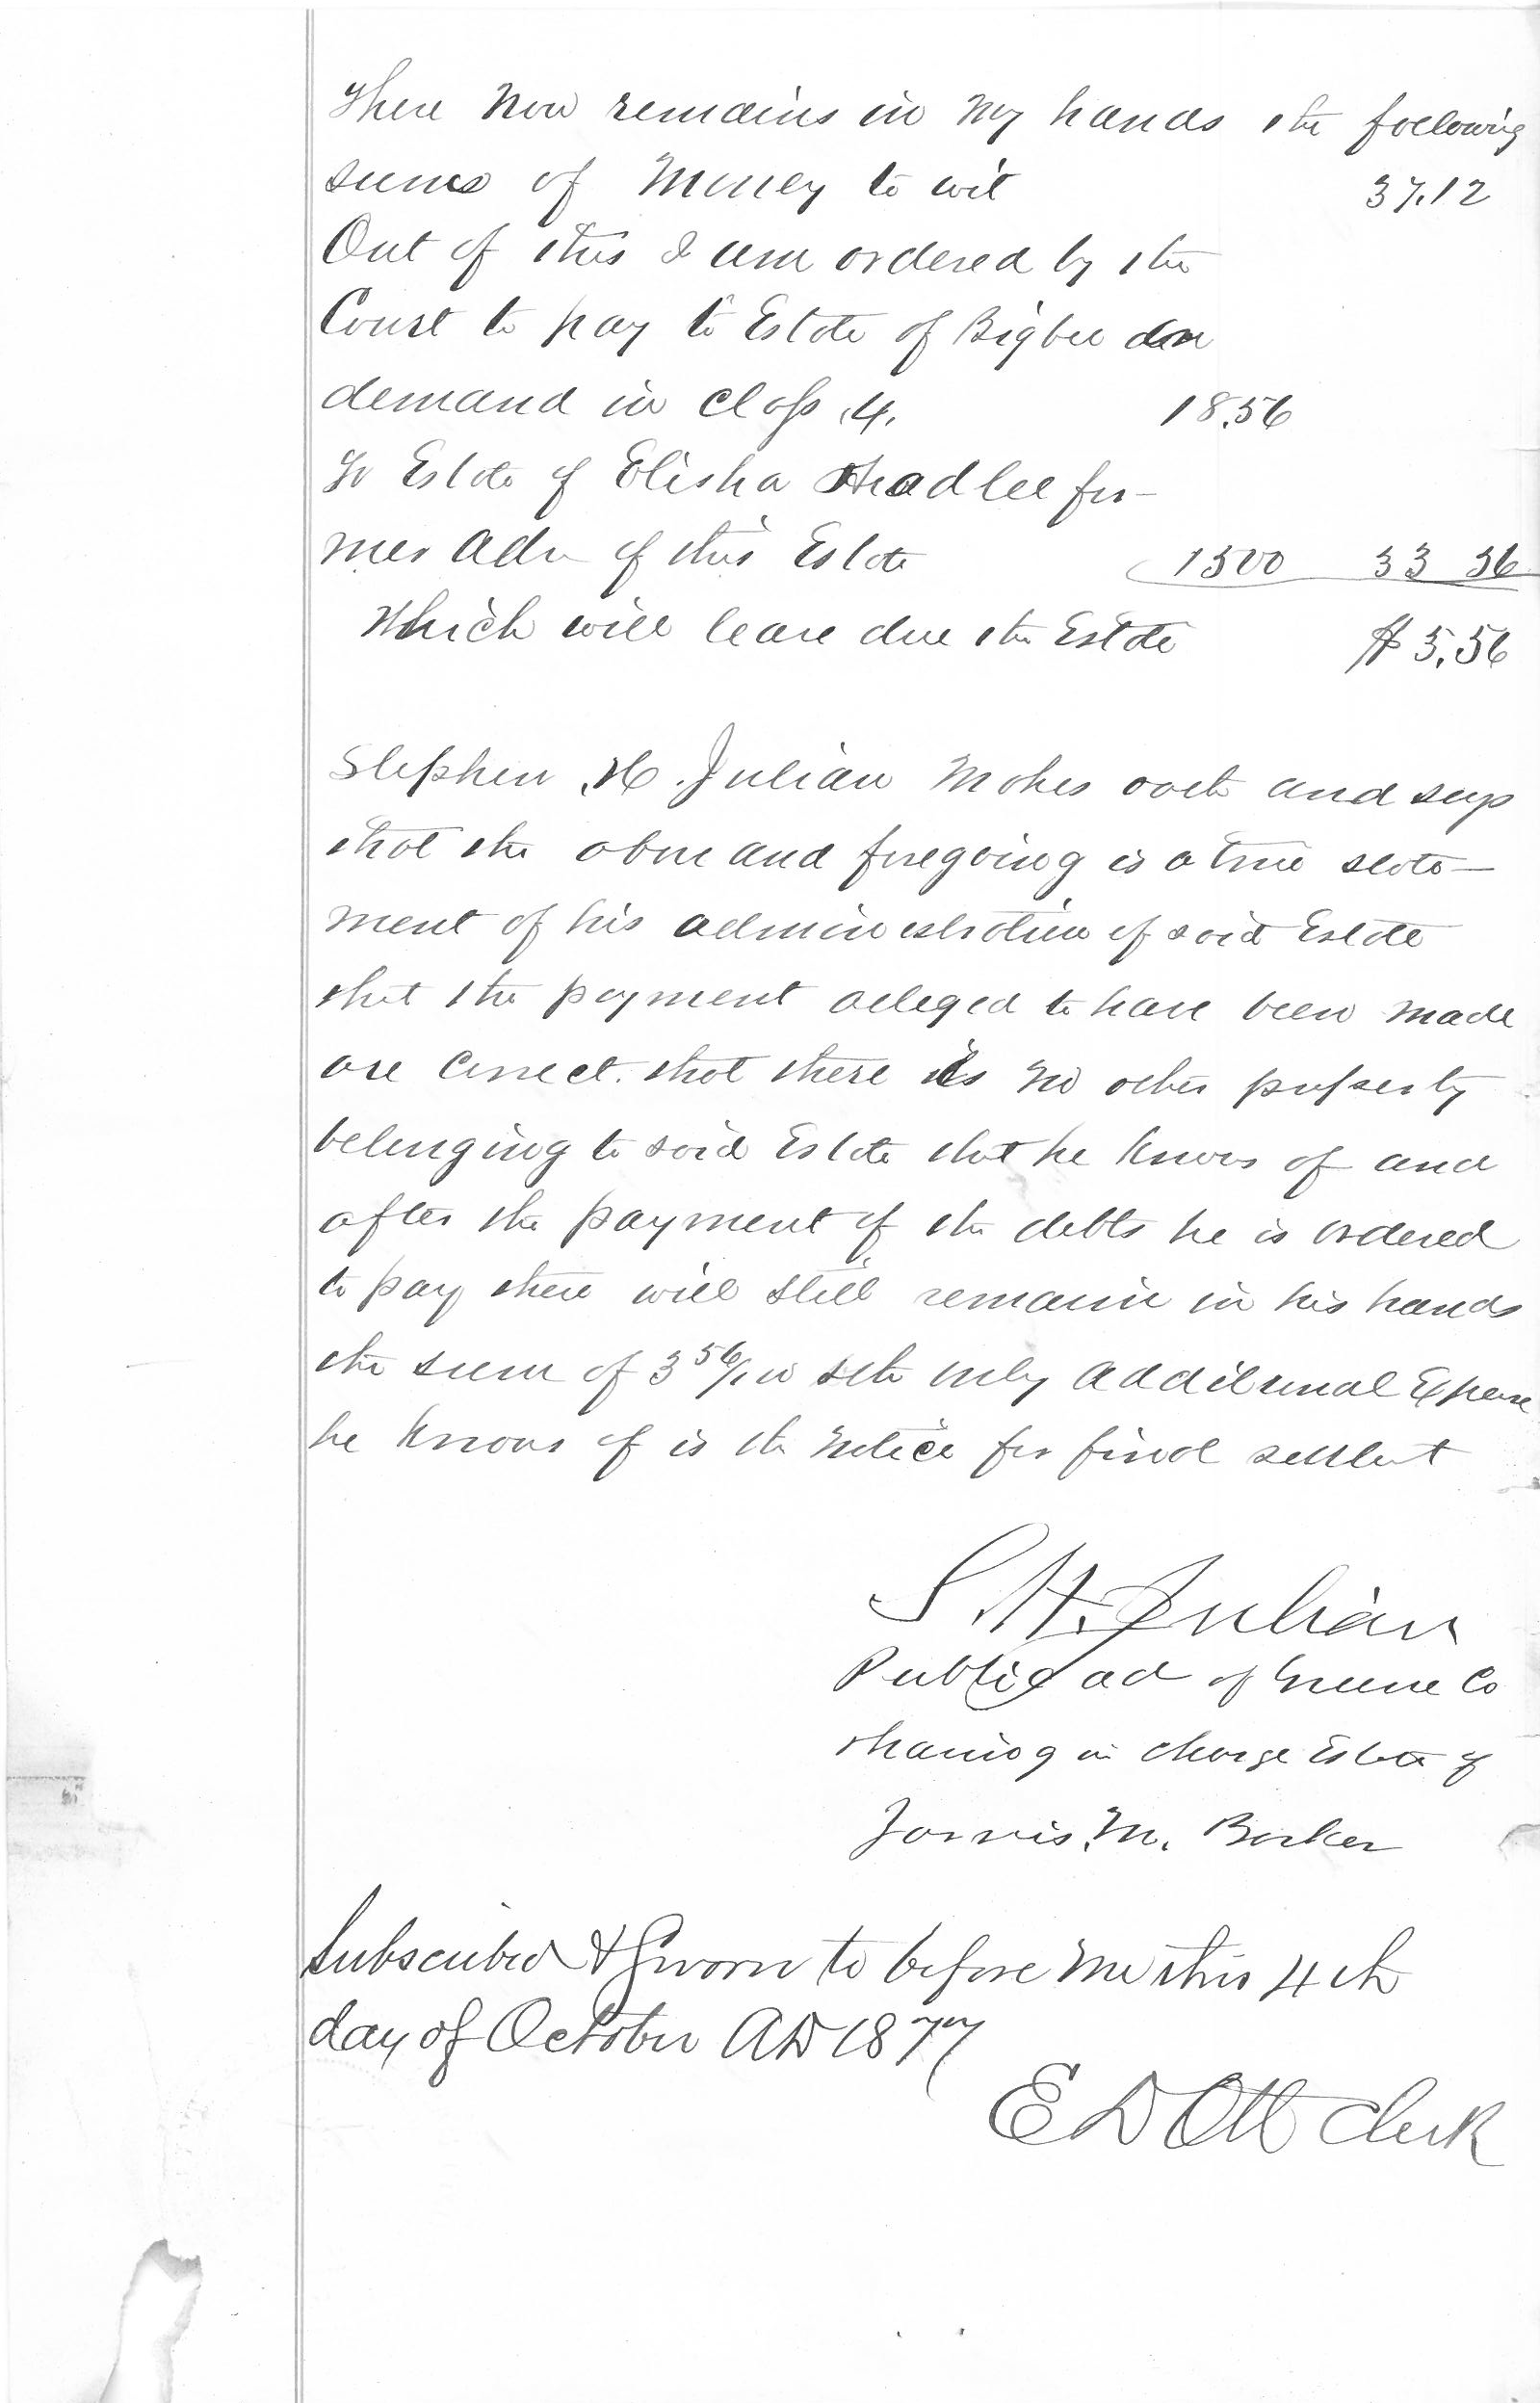 There now remains in my hands the following
sums of money to wit 37.12
Out of this I am ordered by the
Court to pay to Estate of Bigbee
demand in Class 4. 18.56
To Estate of Elisha Headlee for-
mer Adm of this Estate 1500 33 56
Which will leave due the Estate $3.56
Stephen H. Julian Makes oath and says
that the above and foregoing is a true state-
ment of his administration of said Estate
that the payment alleged to have been made
are Correct. that there is no other property
belonging to said Estate that he knows of and
after the payment of the debts he is ordered
to pay there will still remain in his hands
the sum of 3 56/100 the only additional Expense
he knows of is the notice for final settlemt
S. H. Julian
Public ad of Greene Co
having in charge Estate of
Jarvis M. Barker
Subscribed & Sworn to before me this 4th
day of October AD 1877
E D Ott Clerk